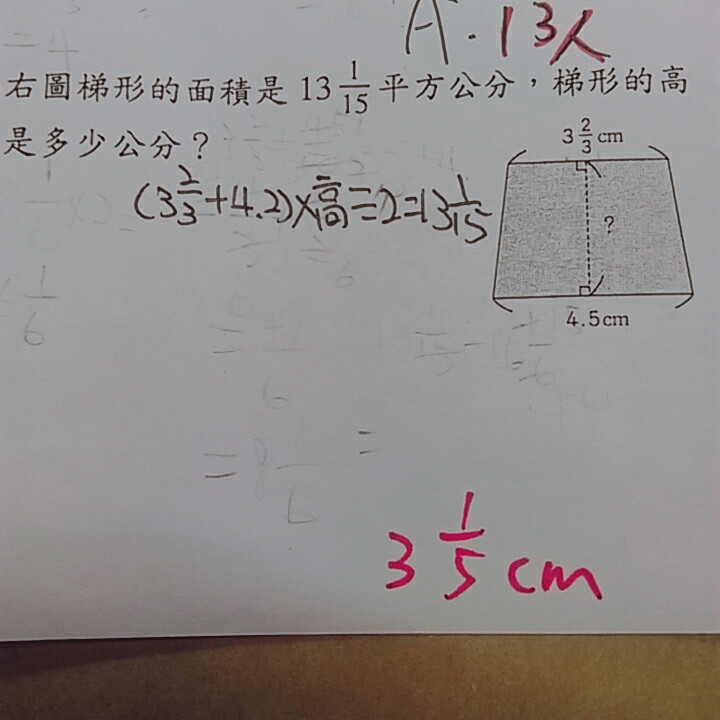 A. 13人
右圖梯形的面積是 13 1/15 平方公分，梯形的高
是多少公分？
3 2/3 cm
(3 2/3 + 4.2) × 高 = 2 = 13 1/15
?
4.5cm
1/6
= 
6
= 8 1/6
=
3 1/5 cm